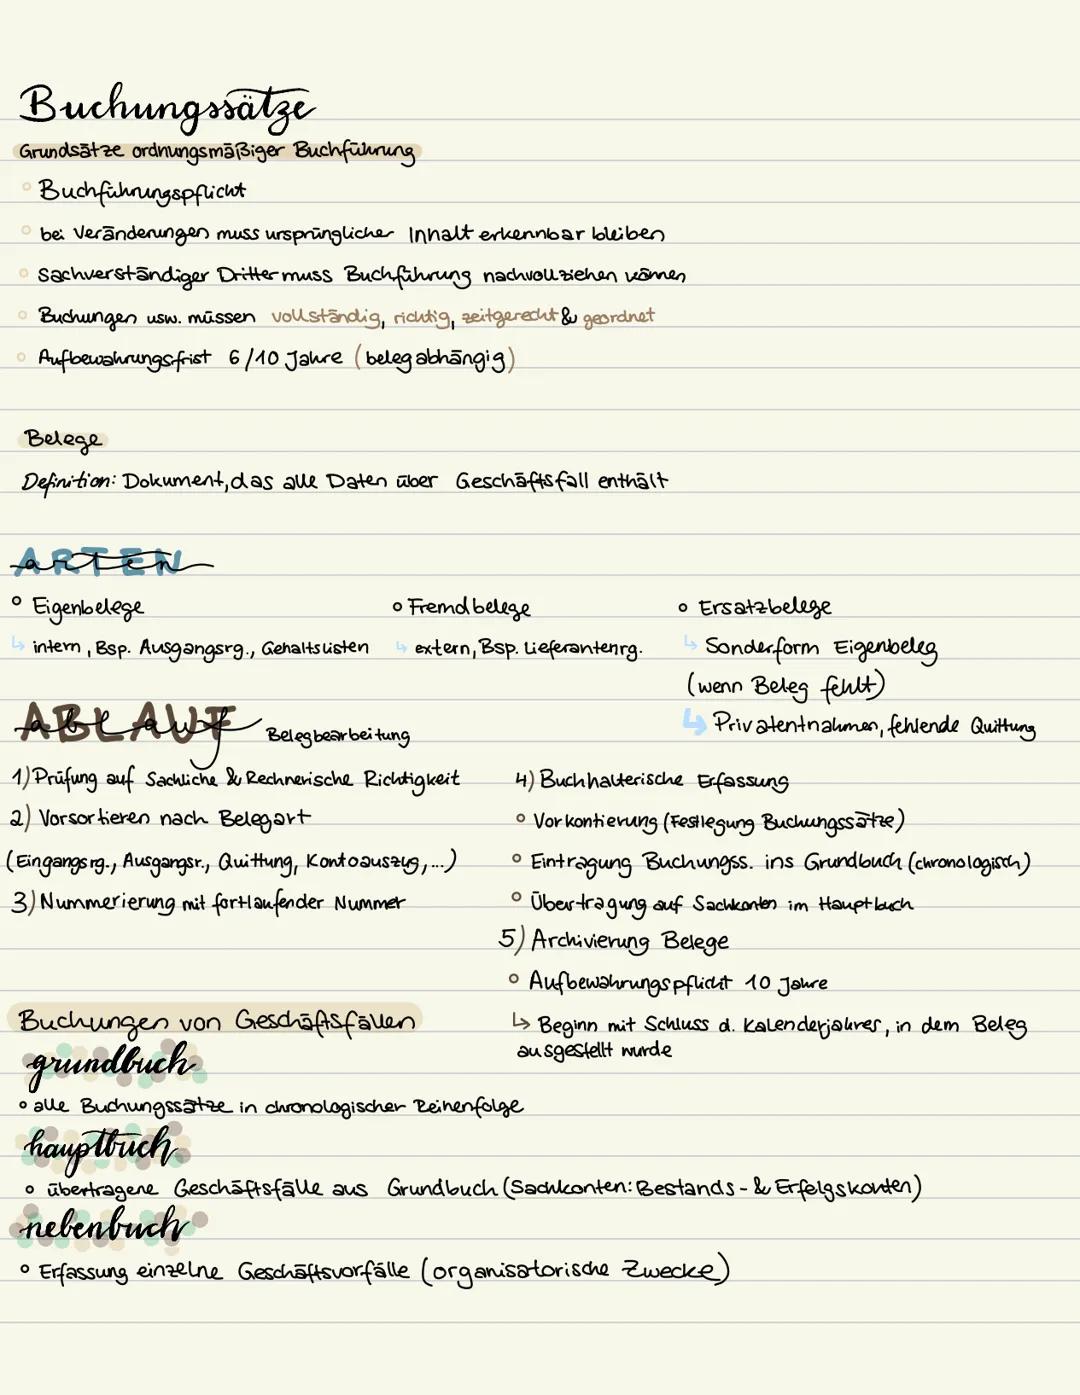 Buchungssätze
Grundsätze ordnungsmäßiger Buchführung
◦ Buchführungspflicht
◦ bei Veränderungen muss ursprünglicher Inhalt erkennbar bleiben
◦ Sachverständiger Dritter muss Buchführung nachvollziehen können
◦ Buchungen usw. müssen vollständig, richtig, zeitgerecht & geordnet
◦ Aufbewahrungsfrist 6/10 Jahre (belegabhängig)
Belege
Definition: Dokument, das alle Daten über Geschäftsfall enthält
ARTEN
arten
◦ Eigenbelege
↳ intern, Bsp. Ausgangsrg., Gehaltslisten
◦ Fremdbelege
↳ extern, Bsp. Lieferantenrg.
◦ Ersatzbelege
↳ Sonderform Eigenbeleg
(wenn Beleg fehlt)
↳ Privatentnahmen, fehlende Quittung
ABLAUF
ablauf Belegbearbeitung
1) Prüfung auf Sachliche & Rechnerische Richtigkeit
2) Vorsortieren nach Belegart
(Eingangsrg., Ausgangsr., Quittung, Kontoauszug, ...)
3) Nummerierung mit fortlaufender Nummer
4) Buchhalterische Erfassung
◦ Vorkontierung (Festlegung Buchungssätze)
◦ Eintragung Buchungss. ins Grundbuch (chronologisch)
◦ Übertragung auf Sachkonten im Hauptbuch
5) Archivierung Belege
◦ Aufbewahrungspflicht 10 Jahre
↳ Beginn mit Schluss d. Kalenderjahres, in dem Beleg
ausgestellt wurde
Buchungen von Geschäftsfällen
grundbuch
◦ alle Buchungssätze in chronologischer Reihenfolge
hauptbuch
◦ übertragene Geschäftsfälle aus Grundbuch (Sachkonten: Bestands- & Erfolgskonten)
nebenbuch
◦ Erfassung einzelne Geschäftsvorfälle (organisatorische Zwecke)